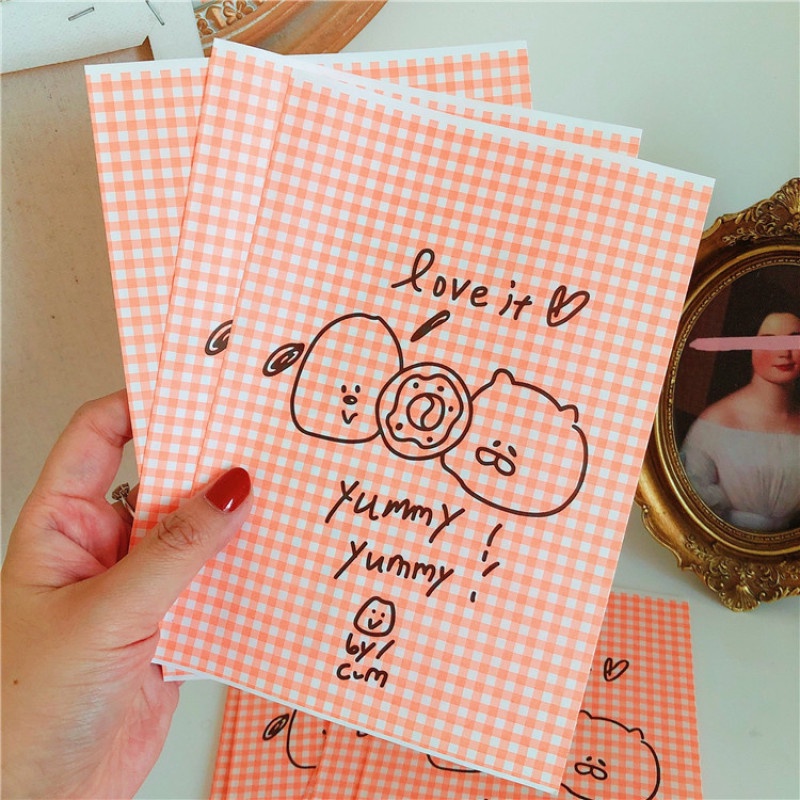 love it
yummy !
yummy !
by /
cum